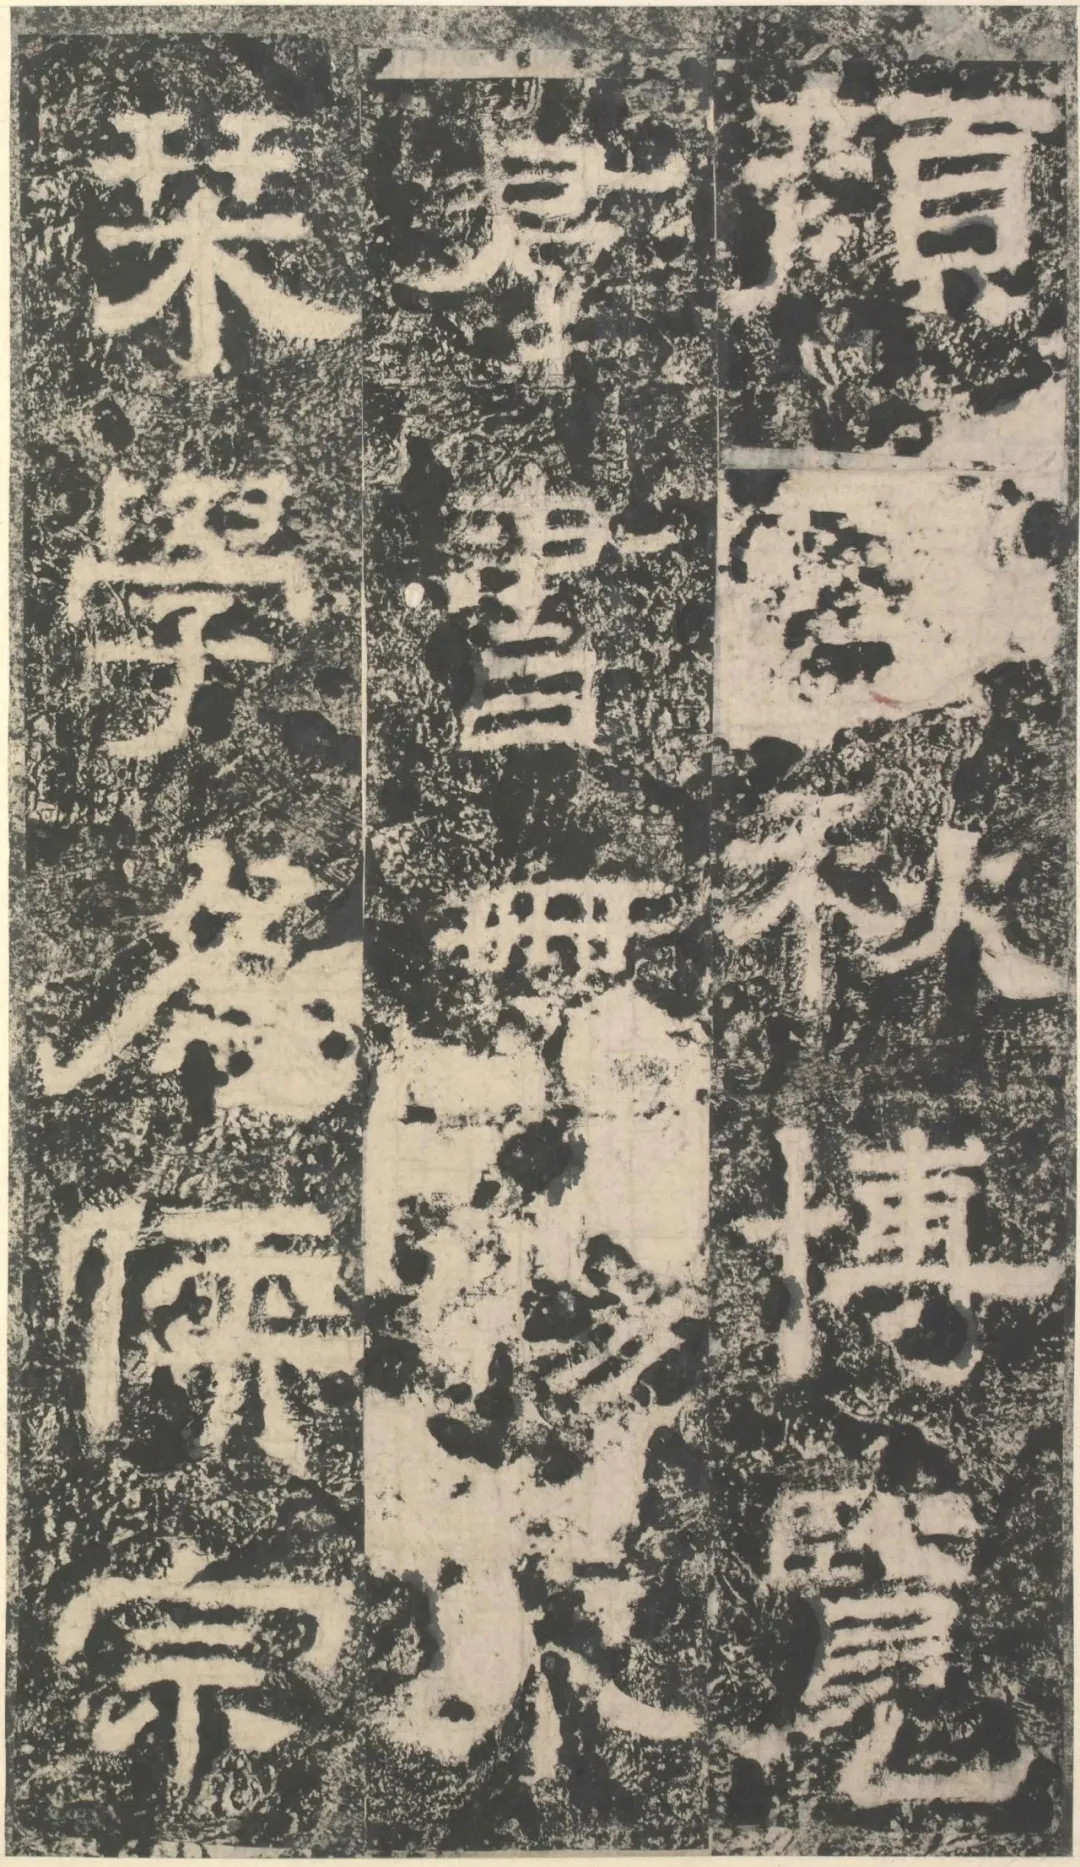 顏秋博覽
羣書無不
栞學為儒宗